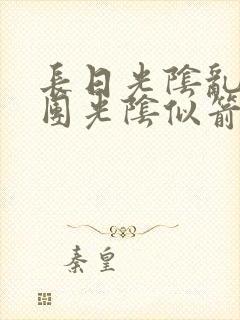 長日光陰亂
團光陰似箭
秦皇